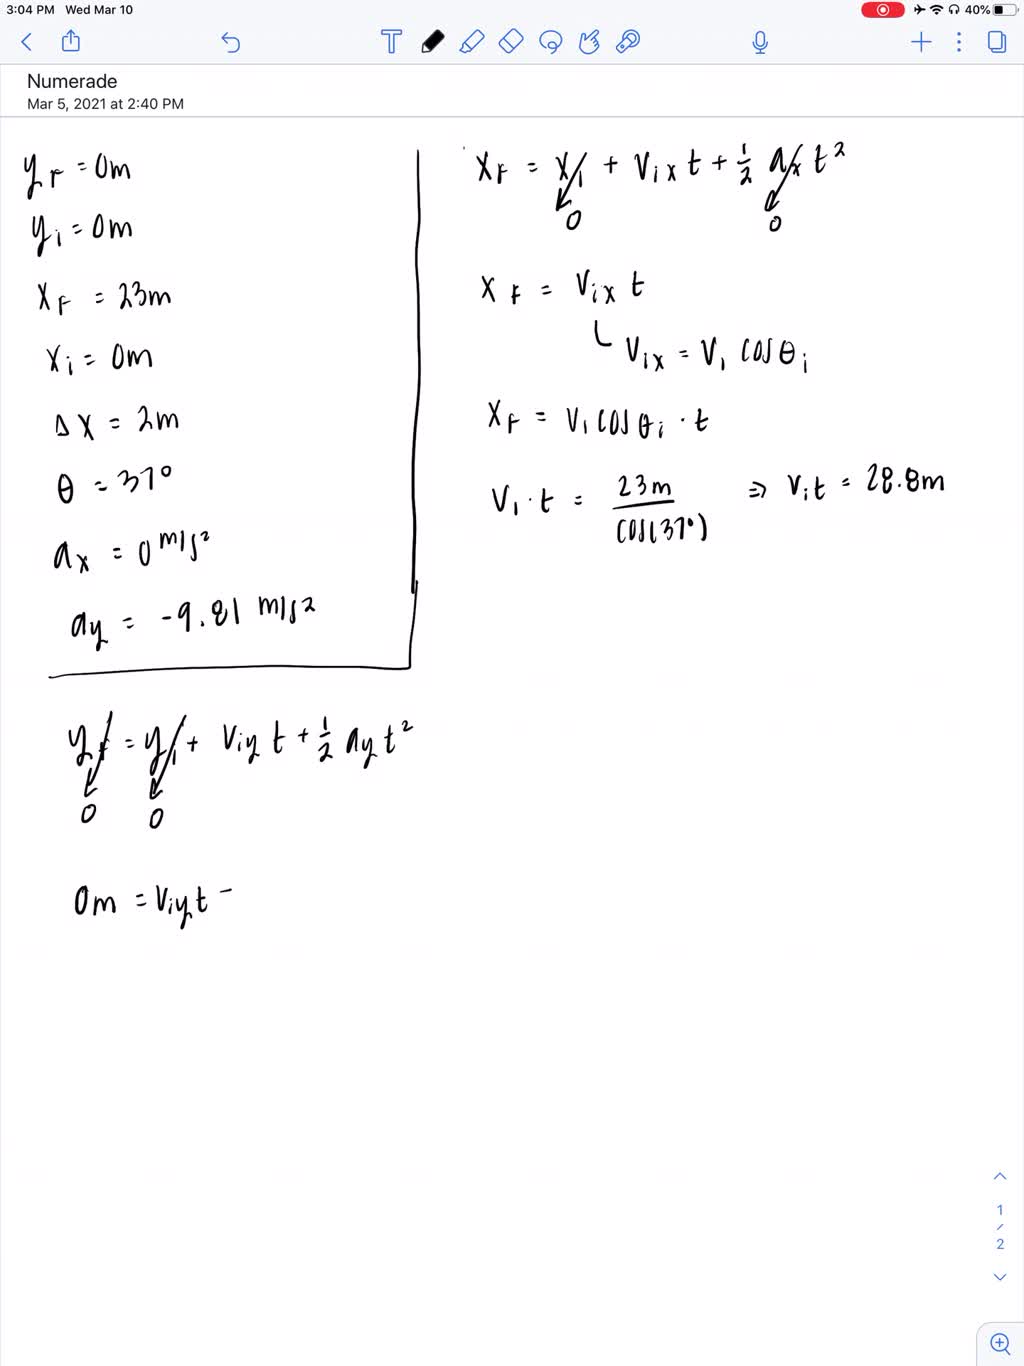 3:04 PM Wed Mar 10 40%
Numerade
Mar 5, 2021 at 2:40 PM
y_F = 0m
y_i = 0m
x_F = 23m
x_i = 0m
Δx = 2m
θ = 37°
a_x = 0 m/s²
a_y = -9.81 m/s²
x_F = x_i + v_ix t + 1/2 a_x t²
0 0
x_F = v_ix t
v_ix = v_i cosθ_i
x_F = v_i cosθ_i · t
v_i · t = 23m / cos(37°) ⇒ v_i t = 28.8m
y_F = y_i + v_iy t + 1/2 a_y t²
0 0
0m = v_iy t -
1
/
2